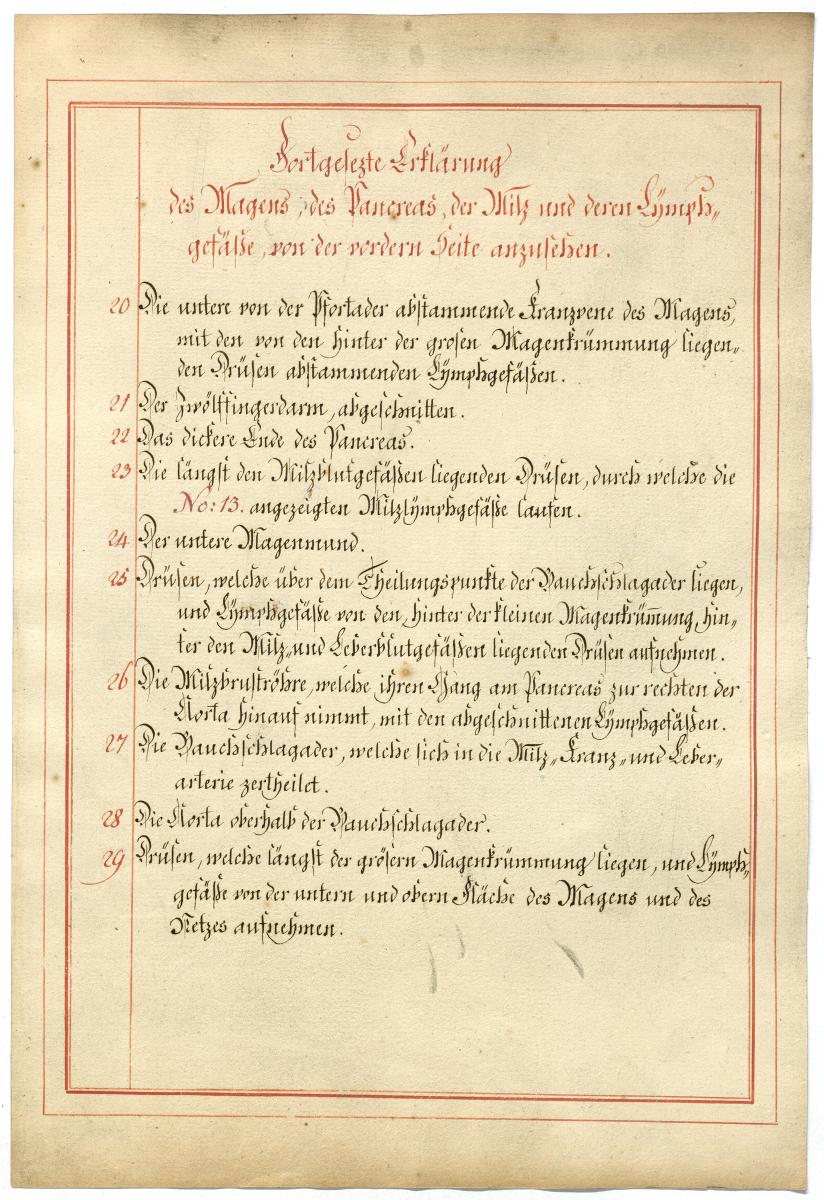 Fortgesezte Erklärung
des Magens, des Pancreas, der Milz und deren Lÿmph„
gefäße, von der vordern Seite anzusehen.
20 Die untere von der Pfortader abstammende Kranzvene des Magens,
mit den von den hinter der grosen Magenkrümmung liegen„
den Drüsen abstammenden Lÿmphgefäßen.
21 Der Zwölffingerdarm, abgeschnitten.
22 Das dickere Ende des Pancreas.
23 Die längst den Milzblutgefäßen liegenden Drüsen, durch welche die
No: 13. angezeigten Milzlÿmphgefäße laufen.
24 Der untere Magenmund.
25 Drüsen, welche über dem Theilungspunkte der Bauchschlagader liegen,
und Lÿmphgefäße von den, hinter der kleinen Magenkrüm̅ung, hin„
ter den Milz„ und Leberblutgefäßen liegenden Drüsen aufnehmen.
26 Die Milzbruströhre, welche ihren Gang am Pancreas zur rechten der
Aorta hinauf nimmt, mit den abgeschnittenen Lÿmphgefäßen.
27 Die Bauchschlagader, welche sich in die Milz„ Kranz„ und Leber„
arterie zertheilet.
28 Die Aorta oberhalb der Bauchschlagader.
29 Drüsen, welche längst der grösern Magenkrümmung liegen, und Lÿmph„
gefäße von der untern und obern Fläche des Magens und des
Netzes aufnehmen.